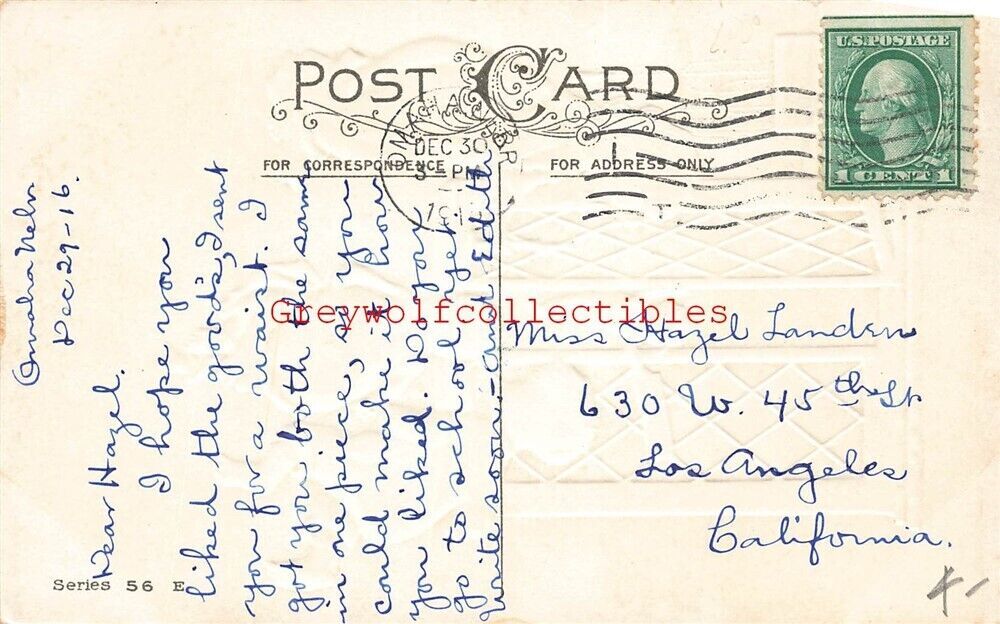 POST CARD
FOR CORRESPONDENCE
FOR ADDRESS ONLY
U.S. POSTAGE
1 CENT 1
OMAHA NEBR
DEC 30
3 PM
Omaha Nebr
Dec 29-16.
Dear Hazel.
I hope you
liked the goods, I sent
you for a waist. I
got you both the same
in one piece, so you
could make it how
you liked. Do you
go to school yet
Write soon. - Aunt Edith
Miss Hazel Landen
630 W. 45th St
Los Angeles
California.
Greywolfcollectibles
Series 56 E